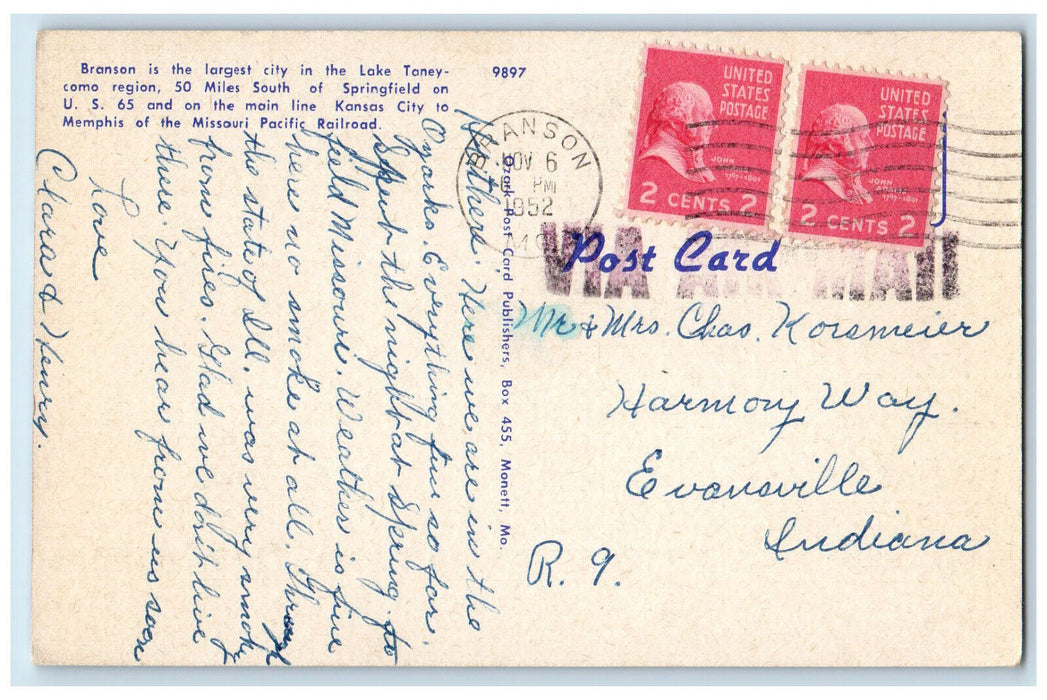 Branson is the largest city in the Lake Taney-
como region, 50 Miles South of Springfield on
U. S. 65 and on the main line Kansas City to
Memphis of the Missouri Pacific Railroad.
9897
Hi there: Here we are in the
Ozarks. Everything fine so far.
Spent the night at Spring-
field Missouri. Weather is fine
here no smoke at all. Through
the state of Ill. was very smoky
from fires. Glad we don't live
there. You hear from us soon
Love
Clara & Henry.
Ozark Post Card Publishers, Box 455, Monett, Mo.
BRANSON
NOV 6
PM
1952
MO
UNITED
STATES
POSTAGE
JOHN
ADAMS
1797-1801
2 CENTS 2
UNITED
STATES
POSTAGE
JOHN
ADAMS
1797-1801
2 CENTS 2
VIA AIR MAIL
Post Card
Mr & Mrs. Chas. Korsmeier
Harmony Way.
Evansville
Indiana
R. 9.